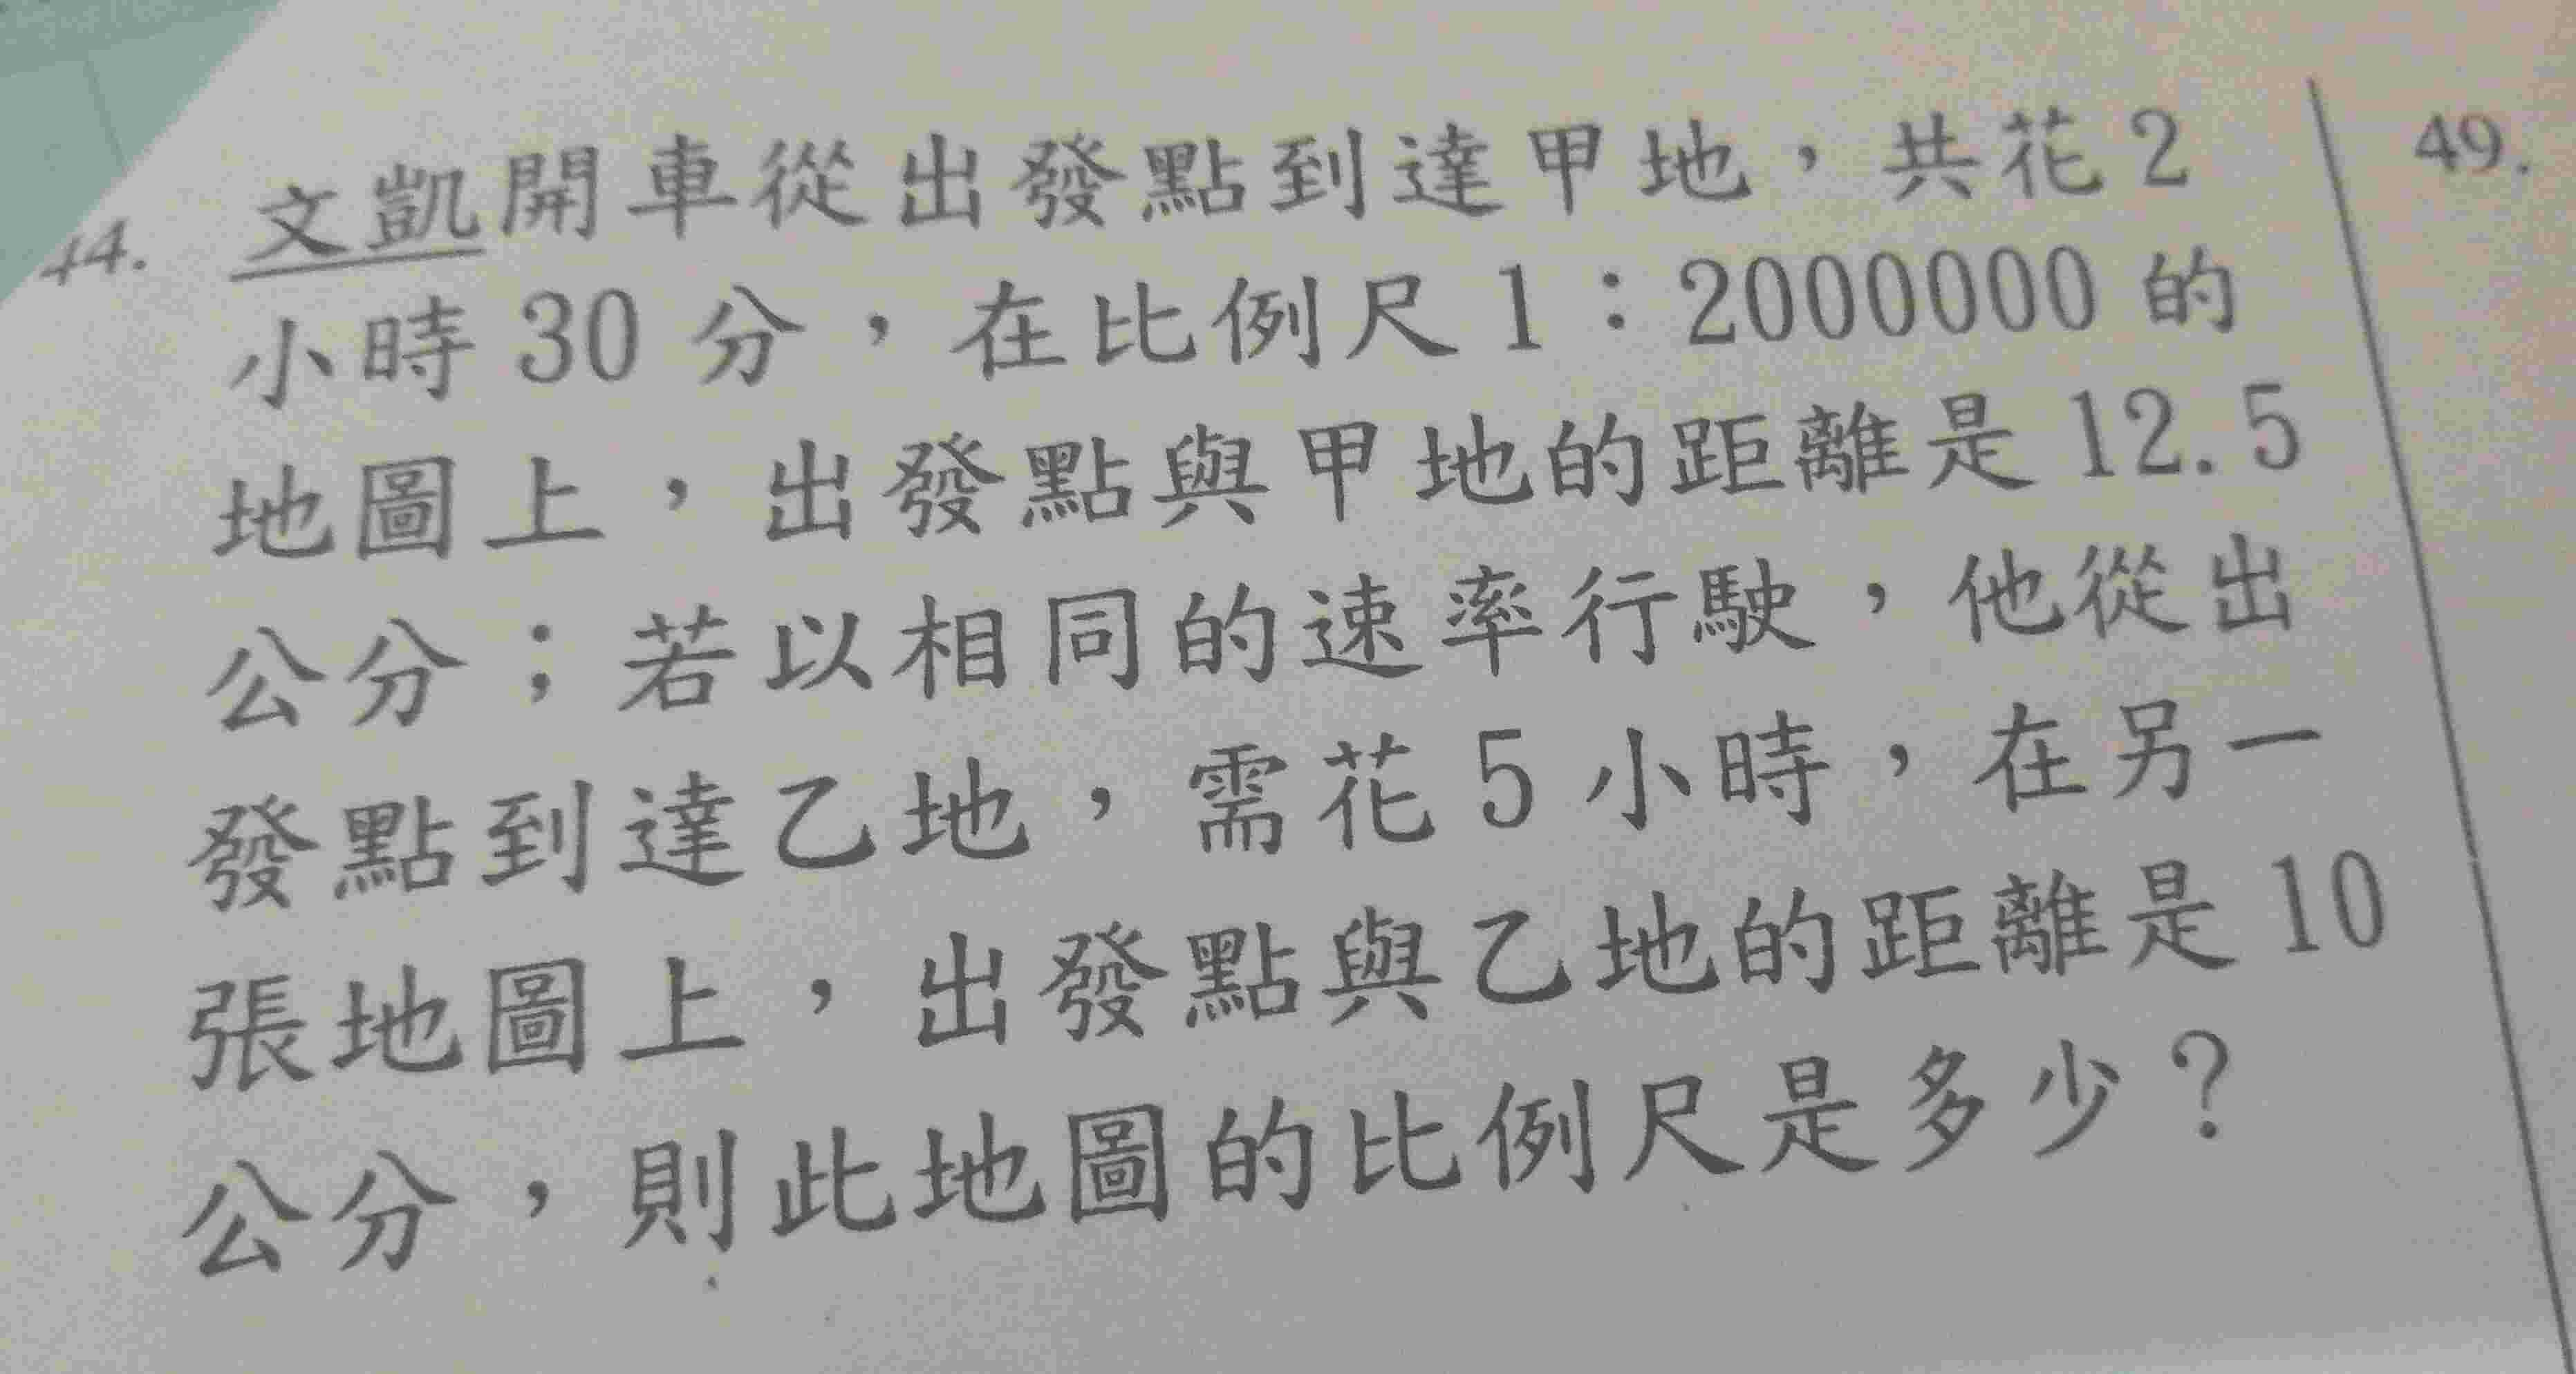 44. 文凱開車從出發點到達甲地，共花2
小時30分，在比例尺1：2000000的
地圖上，出發點與甲地的距離是12.5
公分；若以相同的速率行駛，他從出
發點到達乙地，需花5小時，在另一
張地圖上，出發點與乙地的距離是10
公分，則此地圖的比例尺是多少？
49.